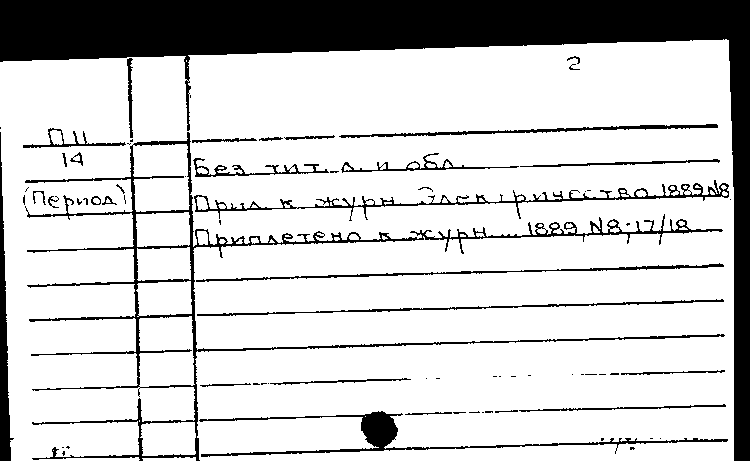 2
П 11
14
Без тит. л. и обл.
(Период)
Прил к журн Электричество 1889, N8
Приплетено к журн ... 1889, N8; 17/18